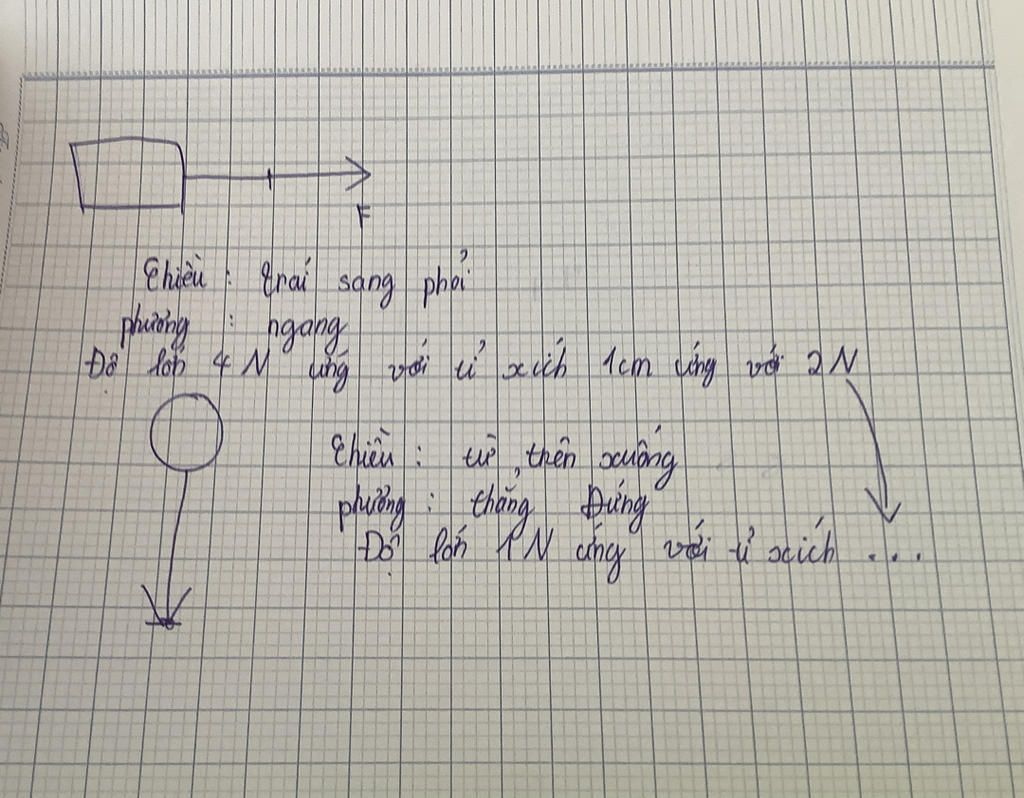 F
Chiều : trái sang phải
phương : ngang
Độ lớn 4 N ứng với tỉ xích 1cm ứng với 2N
Chiều : từ trên xuống
phương : thẳng Đứng
Độ lớn 1N ứng với tỉ xích ...